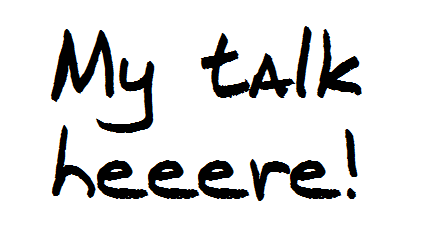 My talk
heeere!